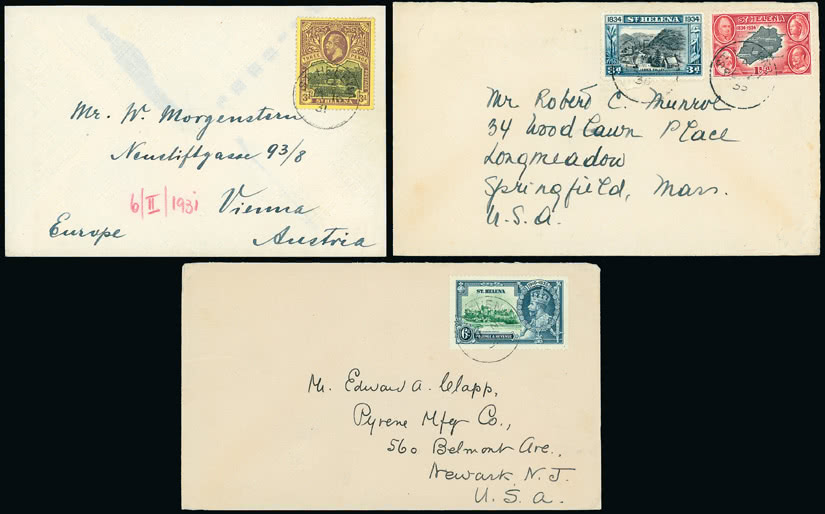 ST HELENA
3d 3d
31
Mr. W. Morgenstern
Neustiftgasse 93/8
6/II/1931
Vienna
Europe
Austria
1834 ST HELENA 1934
3d 3d
ST. HELENA
1834-1934
Mr Robert C. Munroe
34 Wood Lawn Place
Longmeadow
Springfield, Mass.
U.S.A.
ST. HELENA
6D
POSTAGE & REVENUE
Mr. Edward A. Clapp,
Pyrene Mfg Co.,
560 Belmont Ave.,
Newark, N.J.
U.S.A.